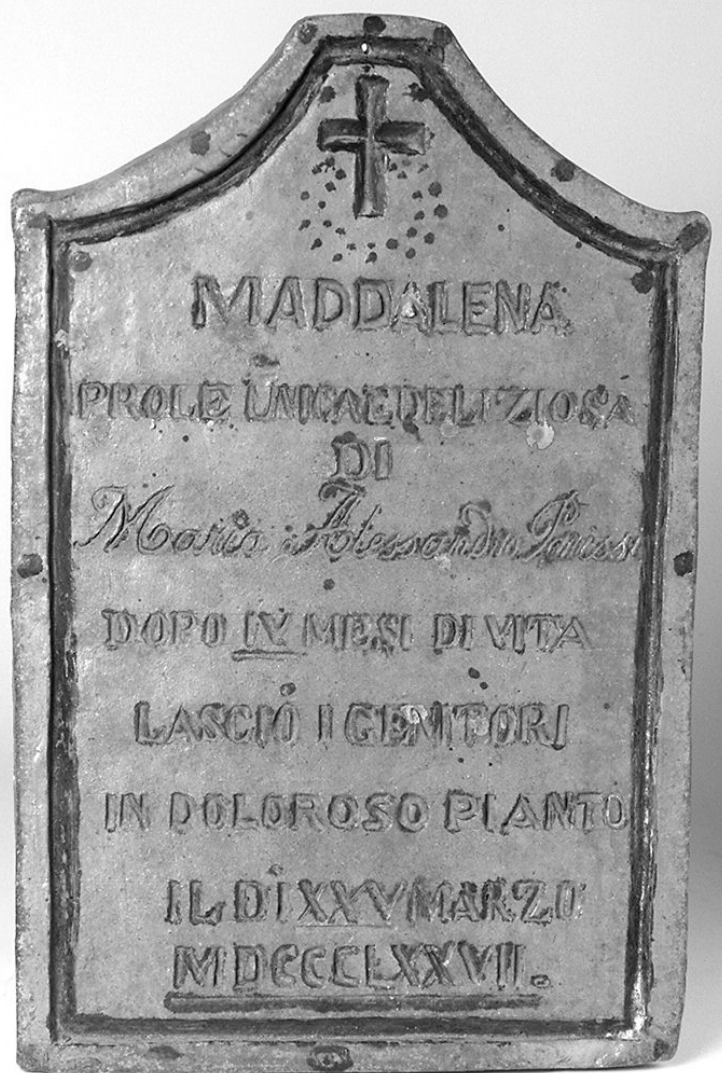 MADDALENA
PROLE UNICA E DELIZIOSA
DI
Alessandro
DOPO IV MESI DI VITA
LASCIÒ I GENITORI
IN DOLOROSO PIANTO
IL DÌ XXV MARZO
MDCCCLXXVII.